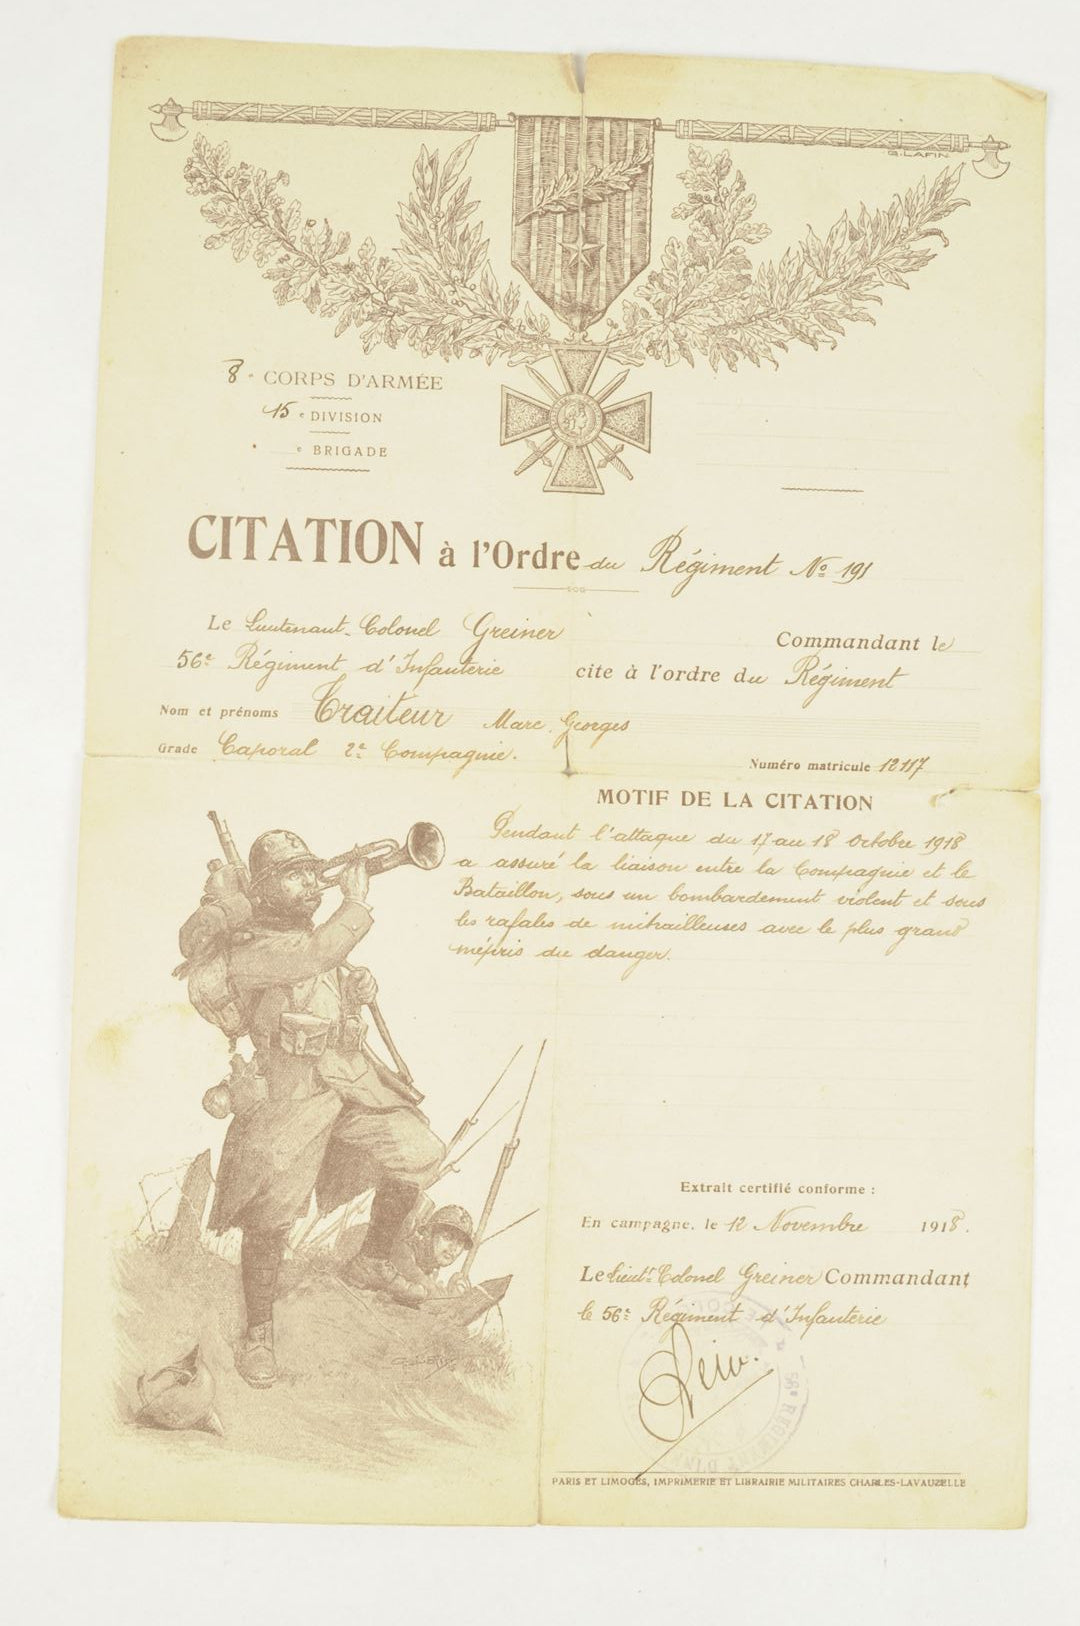 G. LAFIN
8e CORPS D'ARMÉE
15e DIVISION
e BRIGADE
CITATION à l'Ordre du Régiment No 191
Le Lieutenant-Colonel Greiner Commandant le
56e Régiment d'Infanterie cite à l'ordre du Régiment
Nom et prénoms Traiteur Marc, Georges
Grade Caporal 2e Compagnie.
Numéro matricule 12117
MOTIF DE LA CITATION
Pendant l'attaque du 17 au 18 Octobre 1918
a assuré la liaison entre la Compagnie et le
Bataillon, sous un bombardement violent et sous
les rafales de mitrailleuses avec le plus grand
mépris du danger.
Extrait certifié conforme :
En campagne, le 12 Novembre 1918.
Le Lieutt Colonel Greiner Commandant
le 56e Régiment d'Infanterie
56e RÉGIMENT D'INF
PARIS ET LIMOGES, IMPRIMERIE ET LIBRAIRIE MILITAIRES CHARLES-LAVAUZELLE